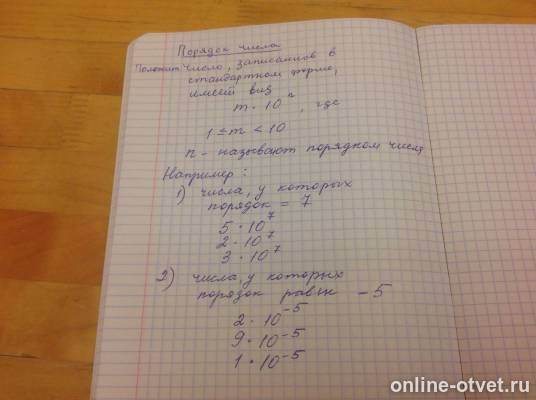 Порядок числа
Положит. Число, записанное в
стандартном форме,
имеет вид
m · 10ⁿ, где
1 ≤ m < 10
n - называют порядком числа
Например:
1) числа, у которых
порядок = 7
5 · 10⁷
2 · 10⁷
3 · 10⁷
2) числа, у которых
порядок равен -5
2 · 10⁻⁵
9 · 10⁻⁵
1 · 10⁻⁵
online-otvet.ru